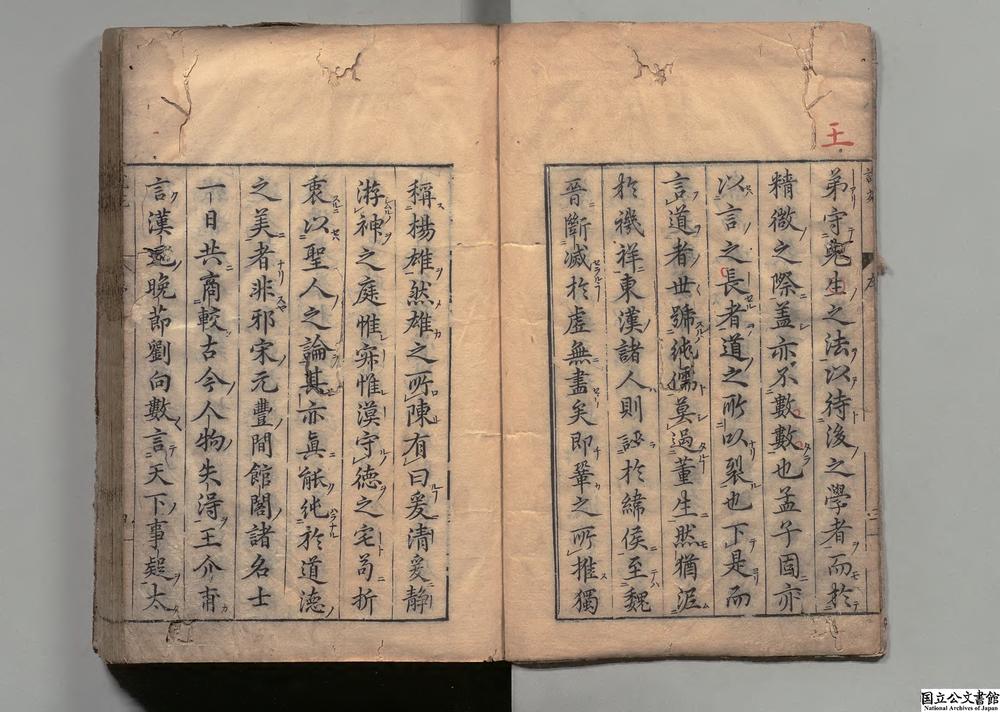 王
弟守先生之法以待後之學者而於
精微之際盖亦不數數也孟子固亦
以言之長者道之所以裂也下是而
言道者世號純儒莫過董生然猶泥
於禨祥東漢諸人則訹於緯侯至魏
晋斷滅於虚無盡矣即鞏之所推獨
稱楊雄然雄之所陳有曰爰清爰静
游神之庭惟寂惟漠守德之宅苟折
衷以聖人之論其亦眞能純於道德
之美者非邪宋元豐間館閣諸名士
一日共商較古今人物失淂王介甫
言漢晚節劉向數言天下事超太
国立公文書館
National Archives of Japan